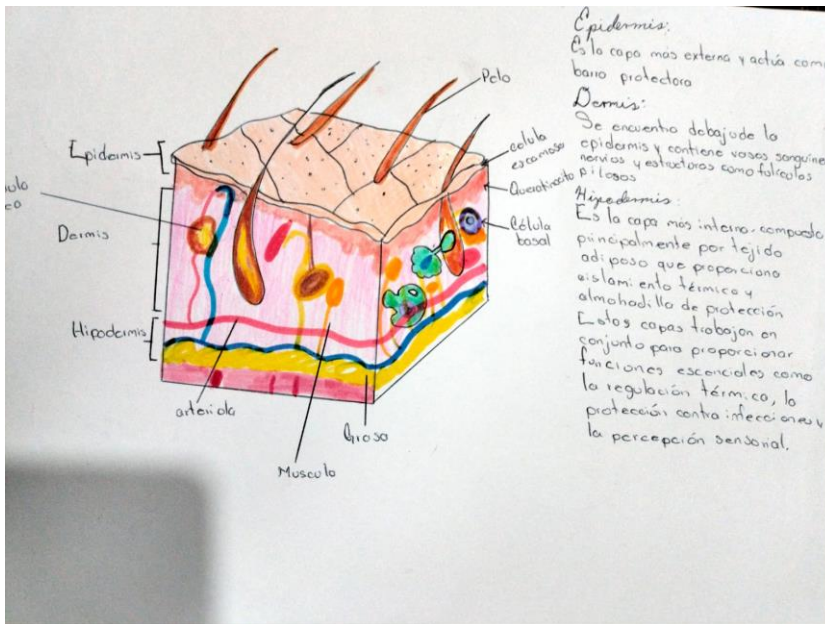 Pelo
Epidermis
celula
escamosa
Querotinocito
Dermis
Célula
basal
Hipodermis
arteriola
Musculo
Graso
Epidermis:
Es la capa más externa y actúa com
barro protectora
Dermis:
Se encuentro debajode la
epidermis y contiene vasos sanguine
nervios y estructuras como folículos
pilosos
Hipodermis:
Es la capa más interna, compuesto
principalmente por tejido
adiposo que proporciona
aislamiento térmico y
almohadilla de protección
Estas capas trabajan en
conjunto para proporcionar
funciones escenciales como
la regulación térmica, la
protección contra infecciones y
la percepción sensorial.